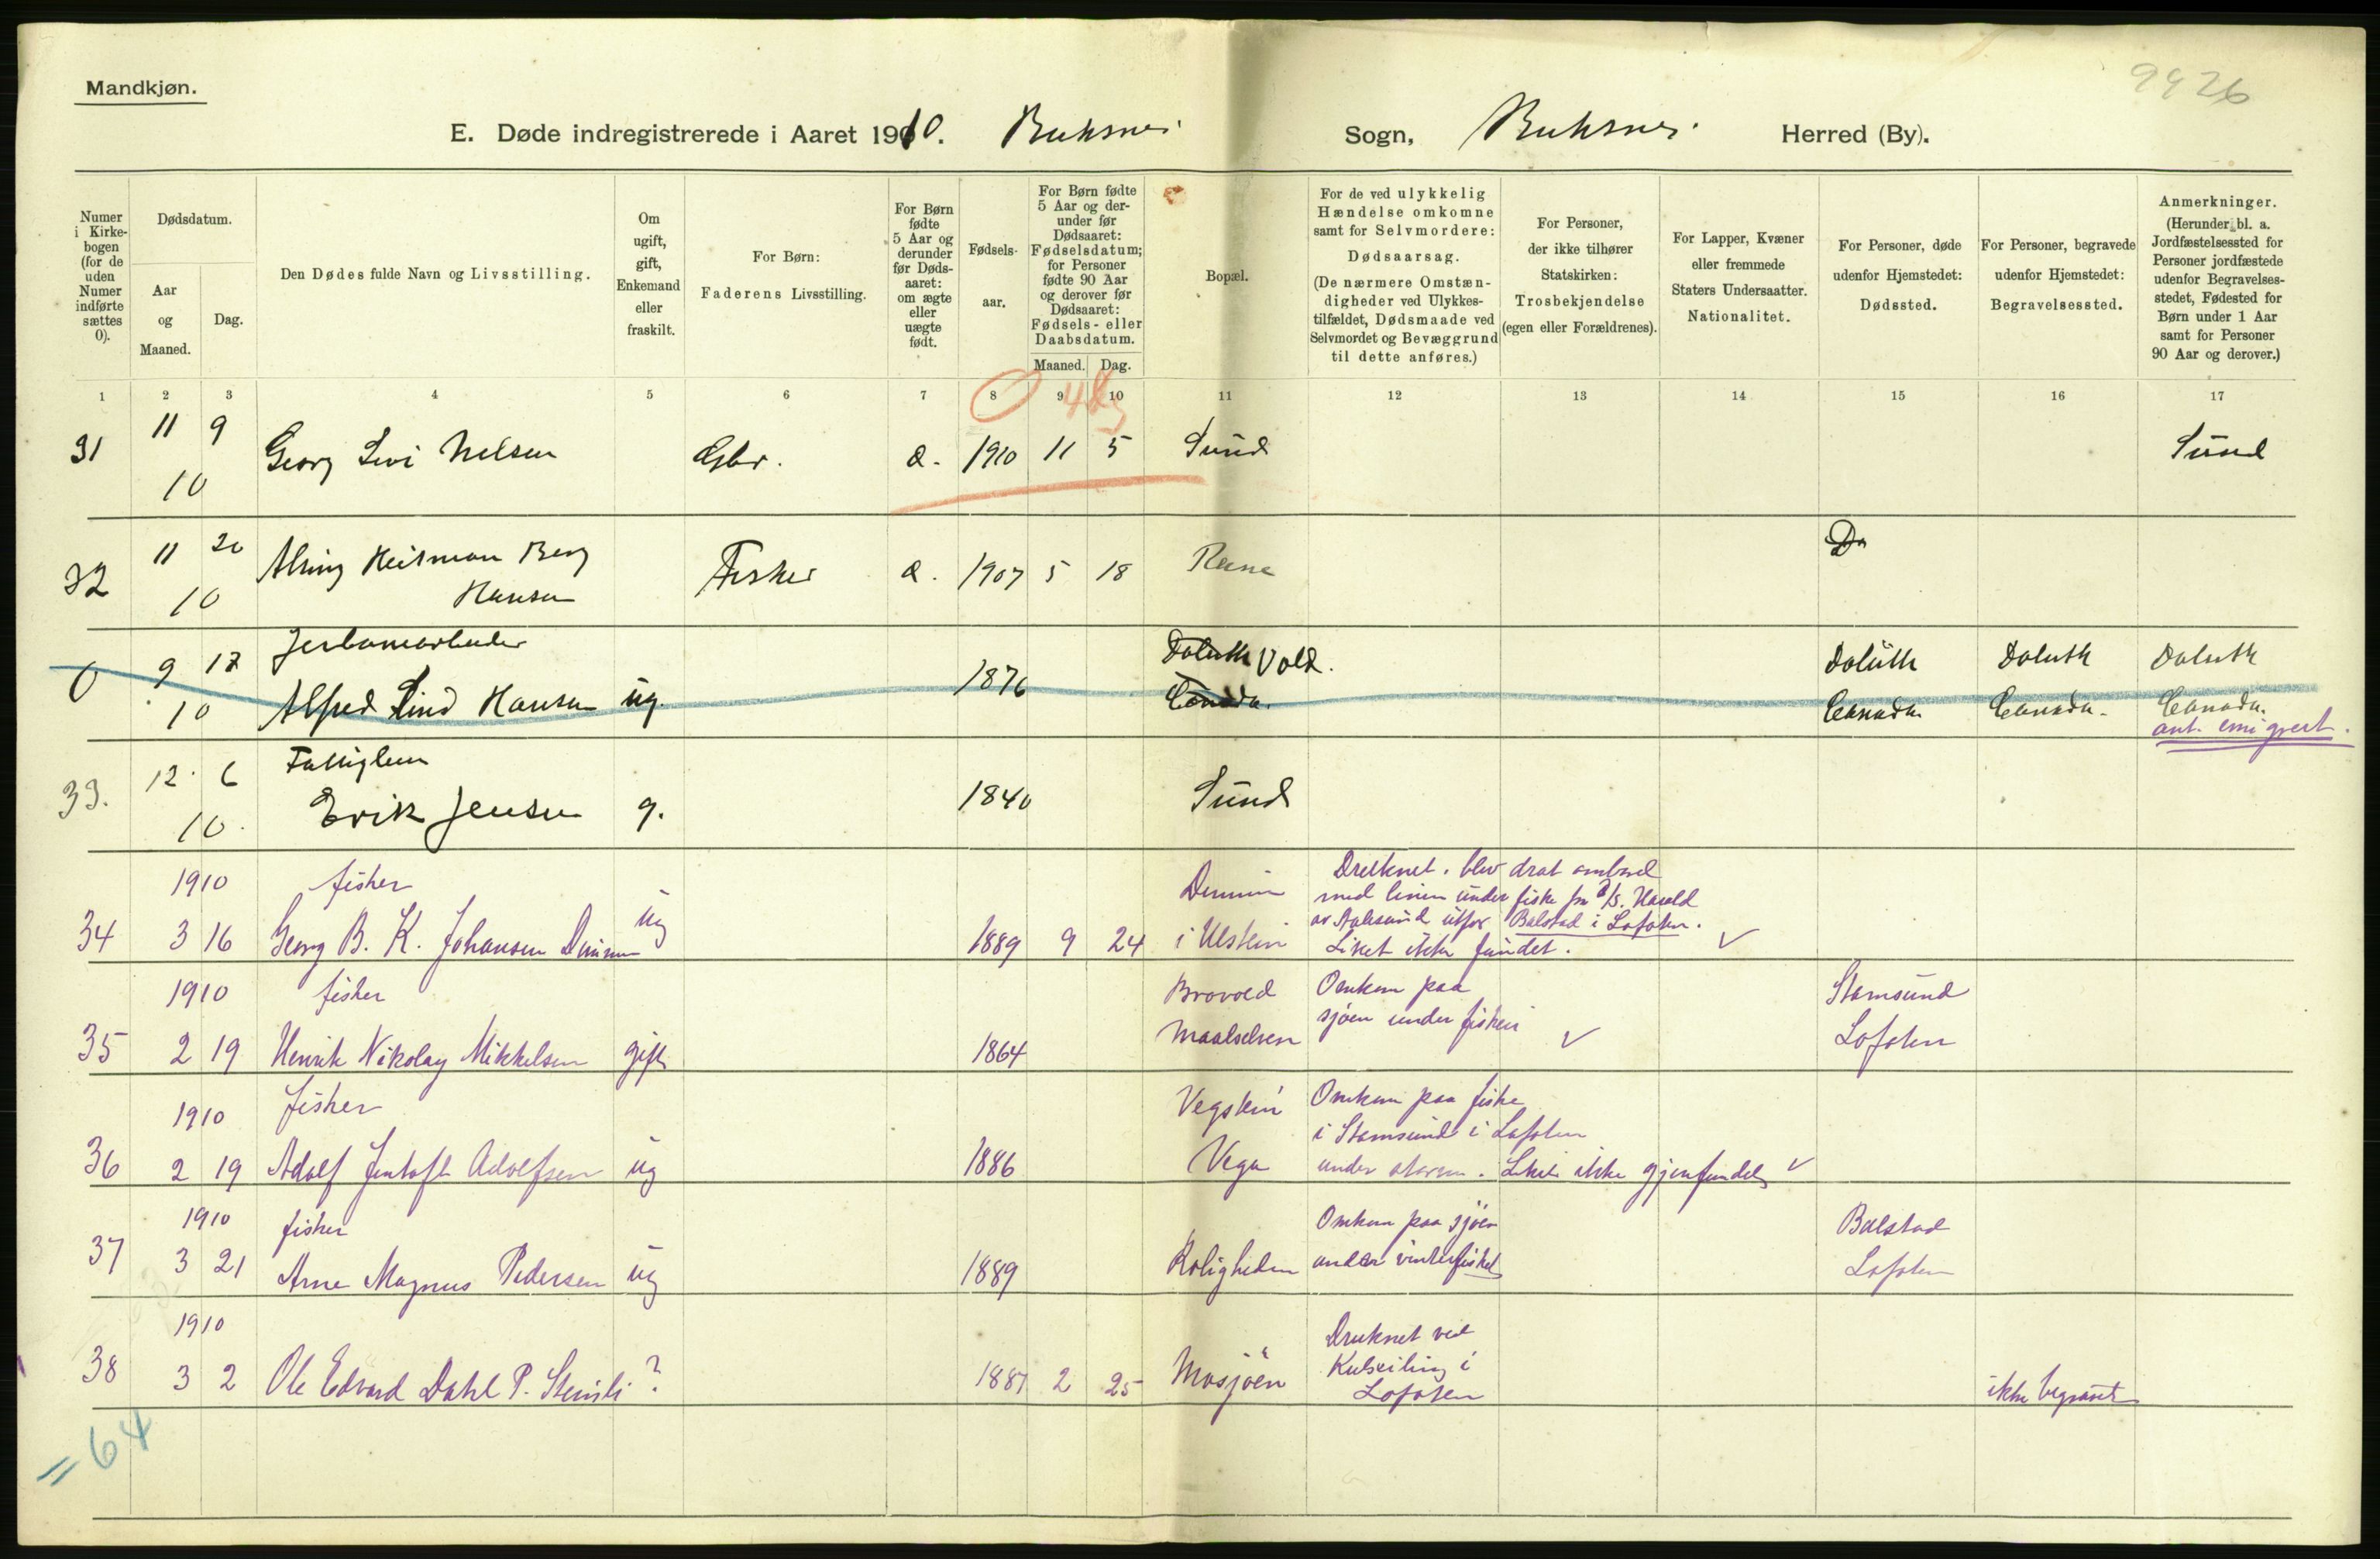 Mandkjøn.
9926
E. Døde indregistrerede i Aaret 1910. Buksnes Sogn, Buksnes Herred (By).
Numer i Kirkebogen (for de uden Numer indførte sættes 0).
Dødsdatum.
Aar og Maaned.
Dag.
Den Dødes fulde Navn og Livsstilling.
Om ugift, gift, Enkemand eller fraskilt.
For Børn: Faderens Livsstilling.
For Børn fødte 5 Aar og derunder før Dødsaaret: om ægte eller uægte født.
Fødselsaar.
For Børn fødte 5 Aar og derunder før Dødsaaret: Fødselsdatum; for Personer fødte 90 Aar og derover før Dødsaaret: Fødsels- eller Daabsdatum.
Maaned. Dag.
Bopæl.
For de ved ulykkelig Hændelse omkomne samt for Selvmordere: Dødsaarsag. (De nærmere Omstændigheder ved Ulykkestilfældet, Dødsmaade ved Selvmordet og Bevæggrund til dette anføres.)
For Personer, der ikke tilhører Statskirken: Trosbekjendelse (egen eller Forældrenes).
For Lapper, Kvæner eller fremmede Staters Undersaatter. Nationalitet.
For Personer, døde udenfor Hjemstedet: Dødssted.
For Personer, begravede udenfor Hjemstedet: Begravelsessted.
Anmerkninger. (Herunder bl. a. Jordfæstelsessted for Personer jordfæstede udenfor Begravelsesstedet, Fødested for Børn under 1 Aar samt for Personer 90 Aar og derover.)
1 2 3 4 5 6 7 8 9 10 11 12 13 14 15 16 17
31 11 9 Georg Levi Nelsen Gbr. æ. 1910 11 5 Sund Sund
10
32 11 20 Heitman Berg Fisker æ. 1907 5 18 Reine
10 Hansen
9 17 Jerbanearbeider Doluth Vold. Doluth Doluth Doluth
0 10 Alfred Lind Hansen ug. 1876 Canada. Canada Canada. Canada.
ant. emigrert.
33. 12 6 Fattiglem
10 Erik Jensen g. 1840 Sund
1910 fisker Druknet. blev drat ombord
med linen under fiske fra D/S. Harald
av Aalesund utfor Balstad i Lofoten.
34 3 16 Georg B. K. Johansen ug 1889 9 24 i Ulstein Liket ikke fundet.
1910 fisker Omkom paa Stamsund
sjøen under fiskeri
35 2 19 Henrik Nikolay Mikkelsen gift 1864 Maalselven Lofoten
1910 fisker Vegstein Omkom paa fiske
i Stamsund i Lofoten
36 2 19 Adolf Jentoft Adolfsen ug 1886 Vega under storm. Liket ikke gjenfundet
1910 fisker Omkom paa sjøen Balstad
37 3 21 Arne Magnus Pedersen ug 1889 Roligheden under vinterfisket Lofoten
1910 Druknet ved
Kulseiling i
38 3 2 Ole Edvard Dahl P. ? 1887 2 25 Mosjøen Lofoten ikke begravet
= 64